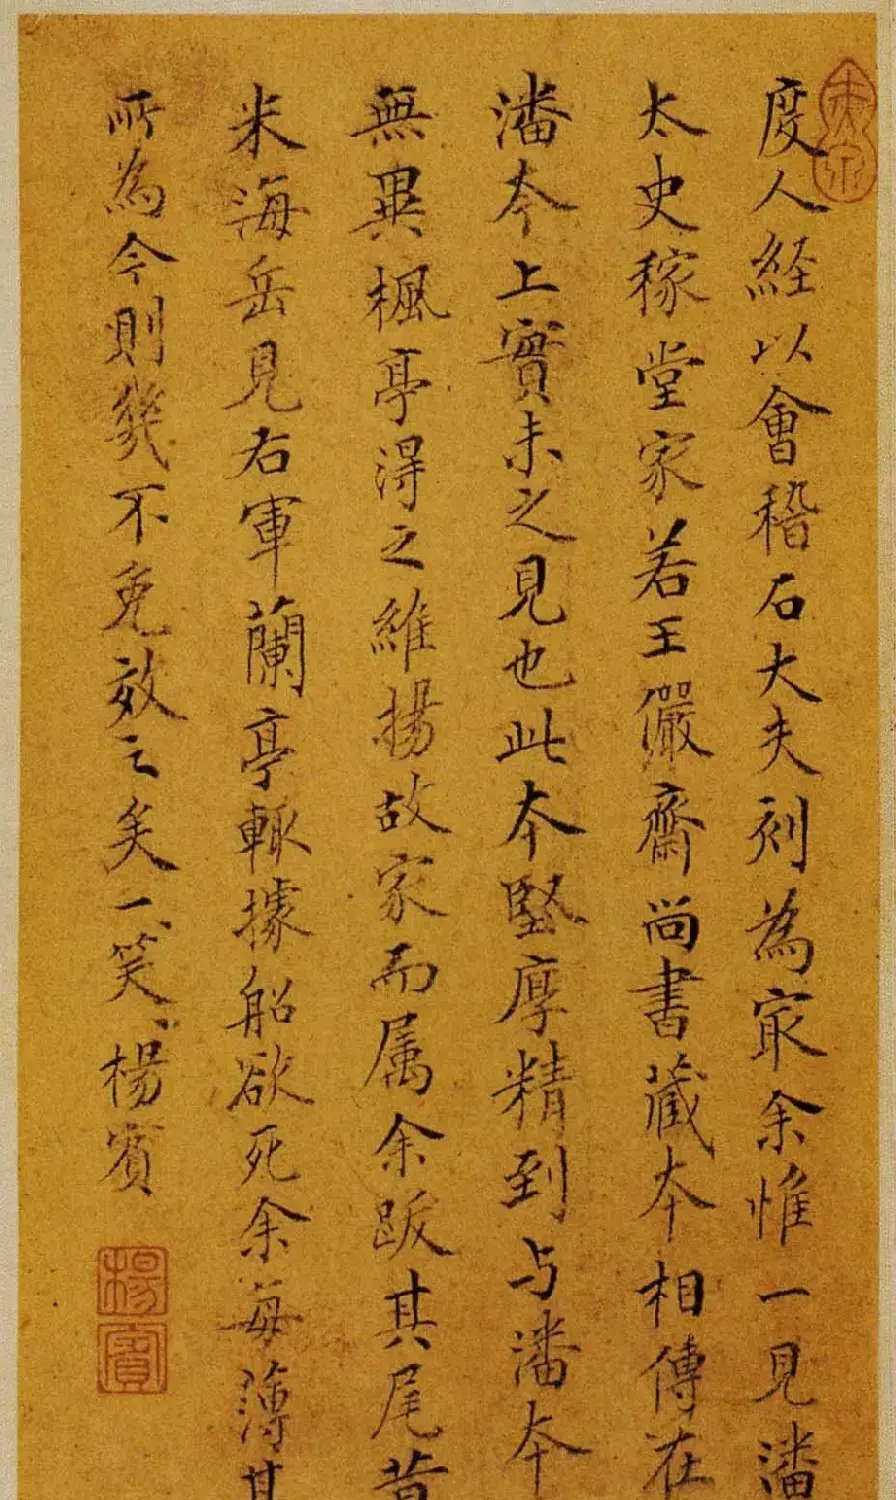 度人經以會稽石大夫刻為最余惟一見潘
太史稼堂家若王儼齋尚書藏本相傳在
潘本上實未之見也此本堅厚精到與潘本
無異楓亭得之維揚故家而属余跋其尾昔
米海岳見右軍蘭亭輒據船欲死余每薄其
所為今則幾不免效之矣一笑楊賓
楊賓